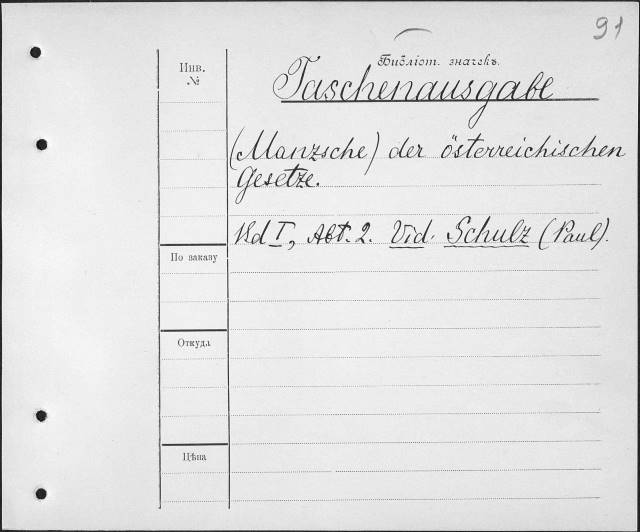 91
Библіот. значекъ.
Инв.
№
Taschenausgabe
(Manzsche) der österreichischen
Gesetze.
Bd I, Abt. 2. Vid. Schulz (Paul).
По заказу
Откуда
Цѣна